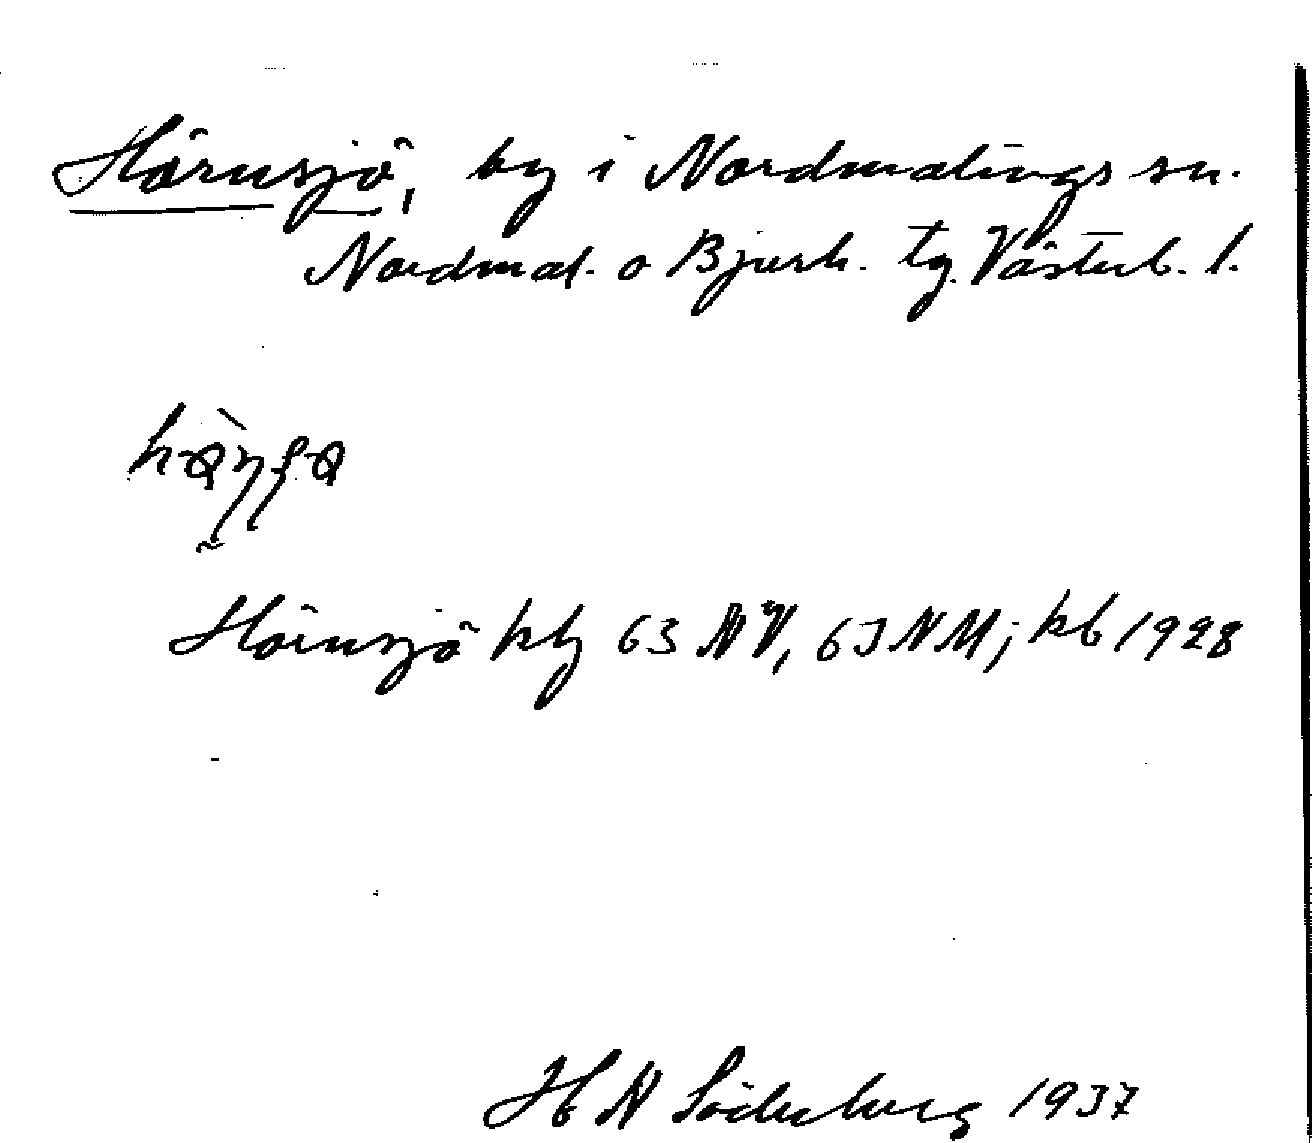 Hörnsjö, by i Nordmalings sn.
Nordmal. o Bjurh. tg. Västerb. l.
Hörnsjö hly 63 NV, 63 NM; kb 1928
H N Söderberg 1937